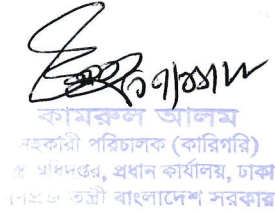 কামরুল আলম
সহকারী পরিচালক (কারিগরি)
অধিদপ্তর, প্রধান কার্যালয়, ঢাকা
বাংলাদেশ সরকার